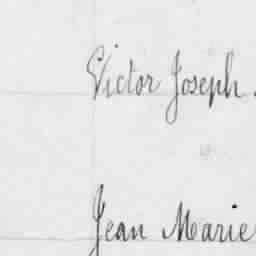 Victor Joseph.
Jean Marie